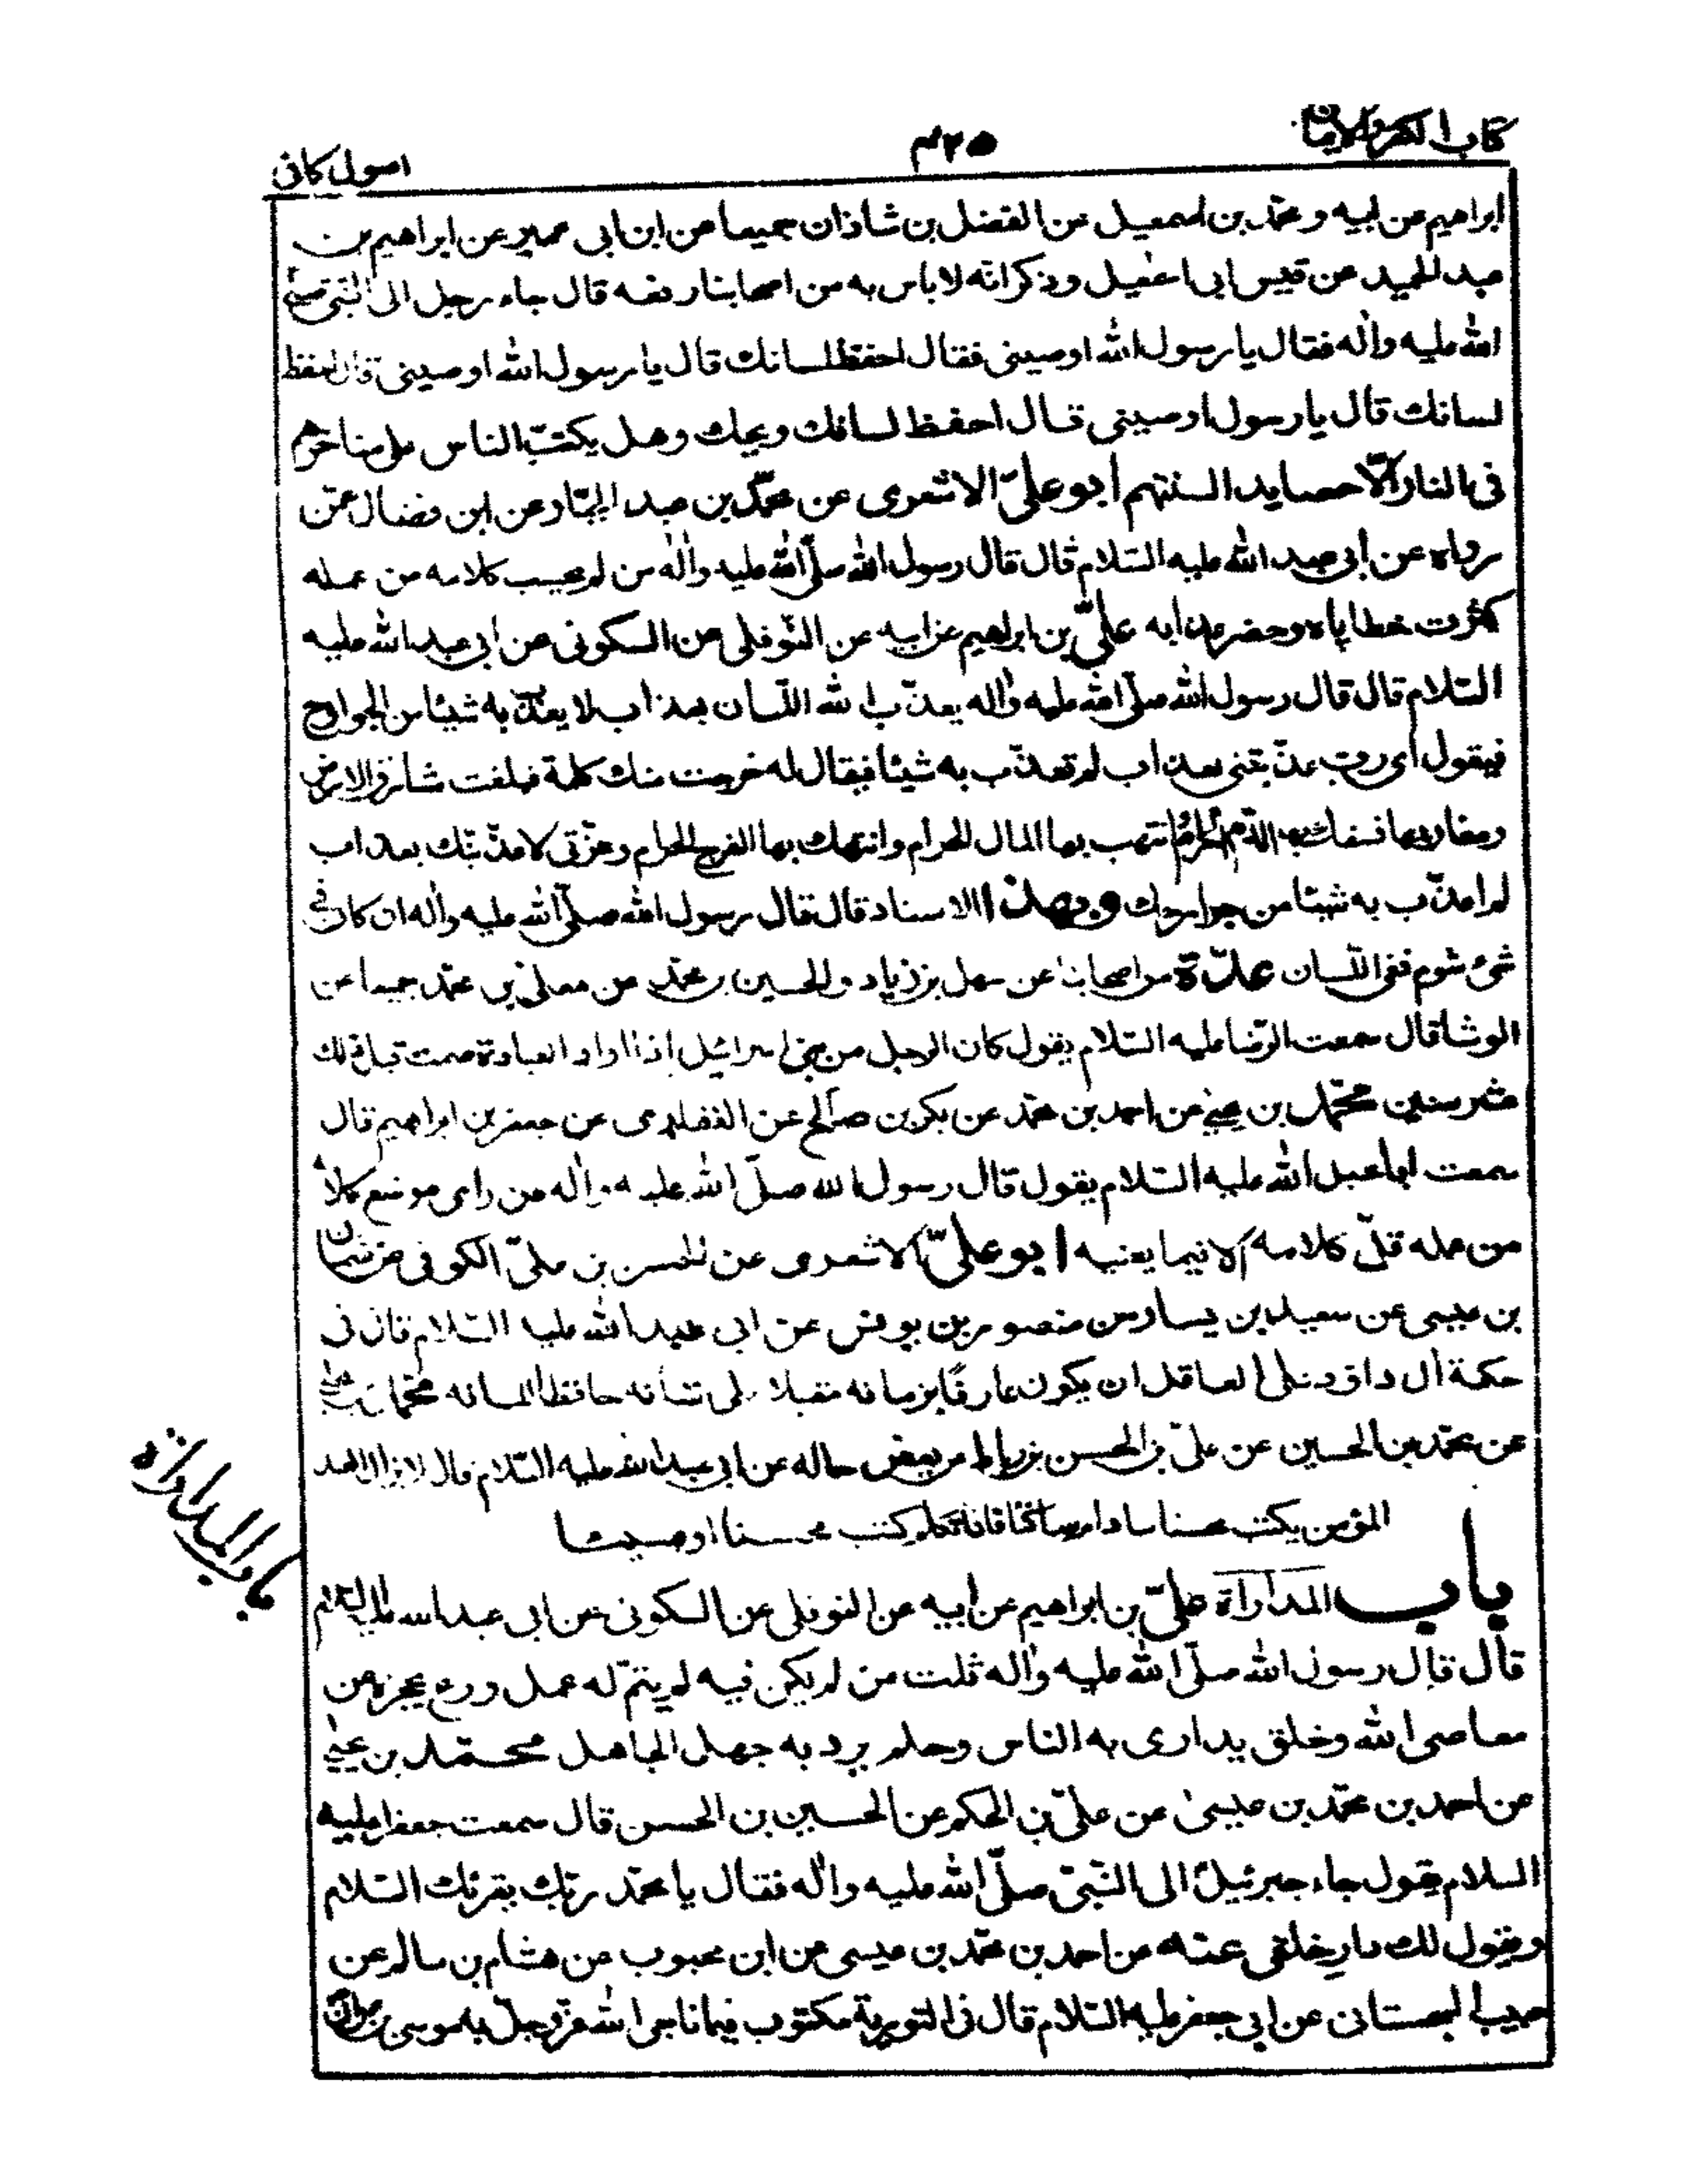 كتاب الكفر والايمان
٤٢٥
اصول كافى
ابراهيم عن ابيه و محمّد بن اسمعيل عن الفضل بن شاذان جميعا عن ابن ابى عمير عن ابراهيم بن
عبد الحميد عن قيس ابى اعفيل وذكر انّه لاباس به من اصحابنا رفعه قال جاء رجل الى النّبىّ صلّى
الله عليه واٰله فقال يا رسول الله اوصينى فقال احفظ لسانك قال يا رسول الله اوصينى قال احفظ
لسانك قال يا رسول اوصينى قال احفظ لسانك ويحك وهل يكبّ الناس على مناخرهم
فى النار الّا حصايد السنتهم ابو علىّ الاشعرى عن محمّد بن عبد الجبّار عن ابن فضال عمّن
رواه عن ابى عبد الله عليه السّلام قال قال رسول الله صلّى الله عليه واٰله من لم يحسب كلامه من عمله
كثرت خطاياه وحضر عذابه علىّ بن ابراهيم عن ابيه عن النّوفلى عن السكونى عن ابى عبد الله عليه
السّلام قال قال رسول الله صلّى الله عليه واٰله يعذّب الله اللّسان بعذاب لا يعذّب به شيئا من الجوارح
فيقول اى ربّ عذّبتنى بعذاب لم تعذّب به شيئا فيقال له خرجت منك كلمة فبلغت مشارق الارض
ومغاربها فسفك بها الدّم الحرام وانتهب بها المال الحرام وانتهك بها الفرج الحرام وعزّتى لاعذّبنّك بعذاب
لم اعذّب به شيئا من جوارحك وبهذا الاسناد قال قال رسول الله صلّى الله عليه واٰله ان كان فى
شئ شوم ففى اللّسان عدّة من اصحابنا عن سهل بن زياد والحسين بن محمّد عن معلّى بن محمّد جميعا عن
الوشا قال سمعت الرّضا عليه السّلام يقول كان الرجل من بنى اسرائيل اذا اراد العبادة صمت قبل ذلك
عشر سنين محمّد بن يحيى عن احمد بن محمّد عن بكر بن صالح عن الغفارى عن جعفر بن ابراهيم قال
سمعت ابا عبد الله عليه السّلام يقول قال رسول الله صلّى الله عليه واٰله من راى موضع كلامه
من عمله قلّ كلامه الا فيما يعنيه ابو علىّ الاشعرى عن الحسن بن علىّ الكوفى عن عثمان
بن عيسى عن سعيد بن يسار عن منصور بن يونس عن ابى عبد الله عليه السّلام قال فى
حكمة اٰل داود على العاقل ان يكون عارفًا بزمانه مقبلا على شانه حافظا للسانه محمّد بن يحيى
عن محمّد بن الحسين عن علىّ بن الحسن بن رباط عن بعض رجاله عن ابى عبد الله عليه السّلام قال لا يزال العبد
المؤمن يكتب محسنا مادام ساكتا فاذا تكلّم كتب محسنا او مسيئا
باب المداراة
باب المداراة علىّ بن ابراهيم عن ابيه عن النوفلى عن السكونى عن ابى عبد الله عليه السّلام
قال قال رسول الله صلّى الله عليه واٰله ثلث من لم يكن فيه لم يتمّ له عمل ورع يحجزه عن
معاصى الله وخلق يدارى به الناس وحلم يرد به جهل الجاهل محمّد بن يحيى
عن احمد بن محمّد بن عيسىٰ عن علىّ بن الحكم عن الحسين بن الحسن قال سمعت جعفرا عليه
السلام يقول جاء جبرئيل الى النّبىّ صلّى الله عليه واٰله فقال يا محمّد ربّك يقرئك السّلام
ويقول لك دارِ خلقى عنه عن احمد بن محمّد بن عيسى عن ابن محبوب عن هشام بن سالم عن
حبيب السجستانى عن ابى جعفر عليه السّلام قال فى التورية مكتوب فيما ناجى الله عزّ وجلّ به موسى بن عمران